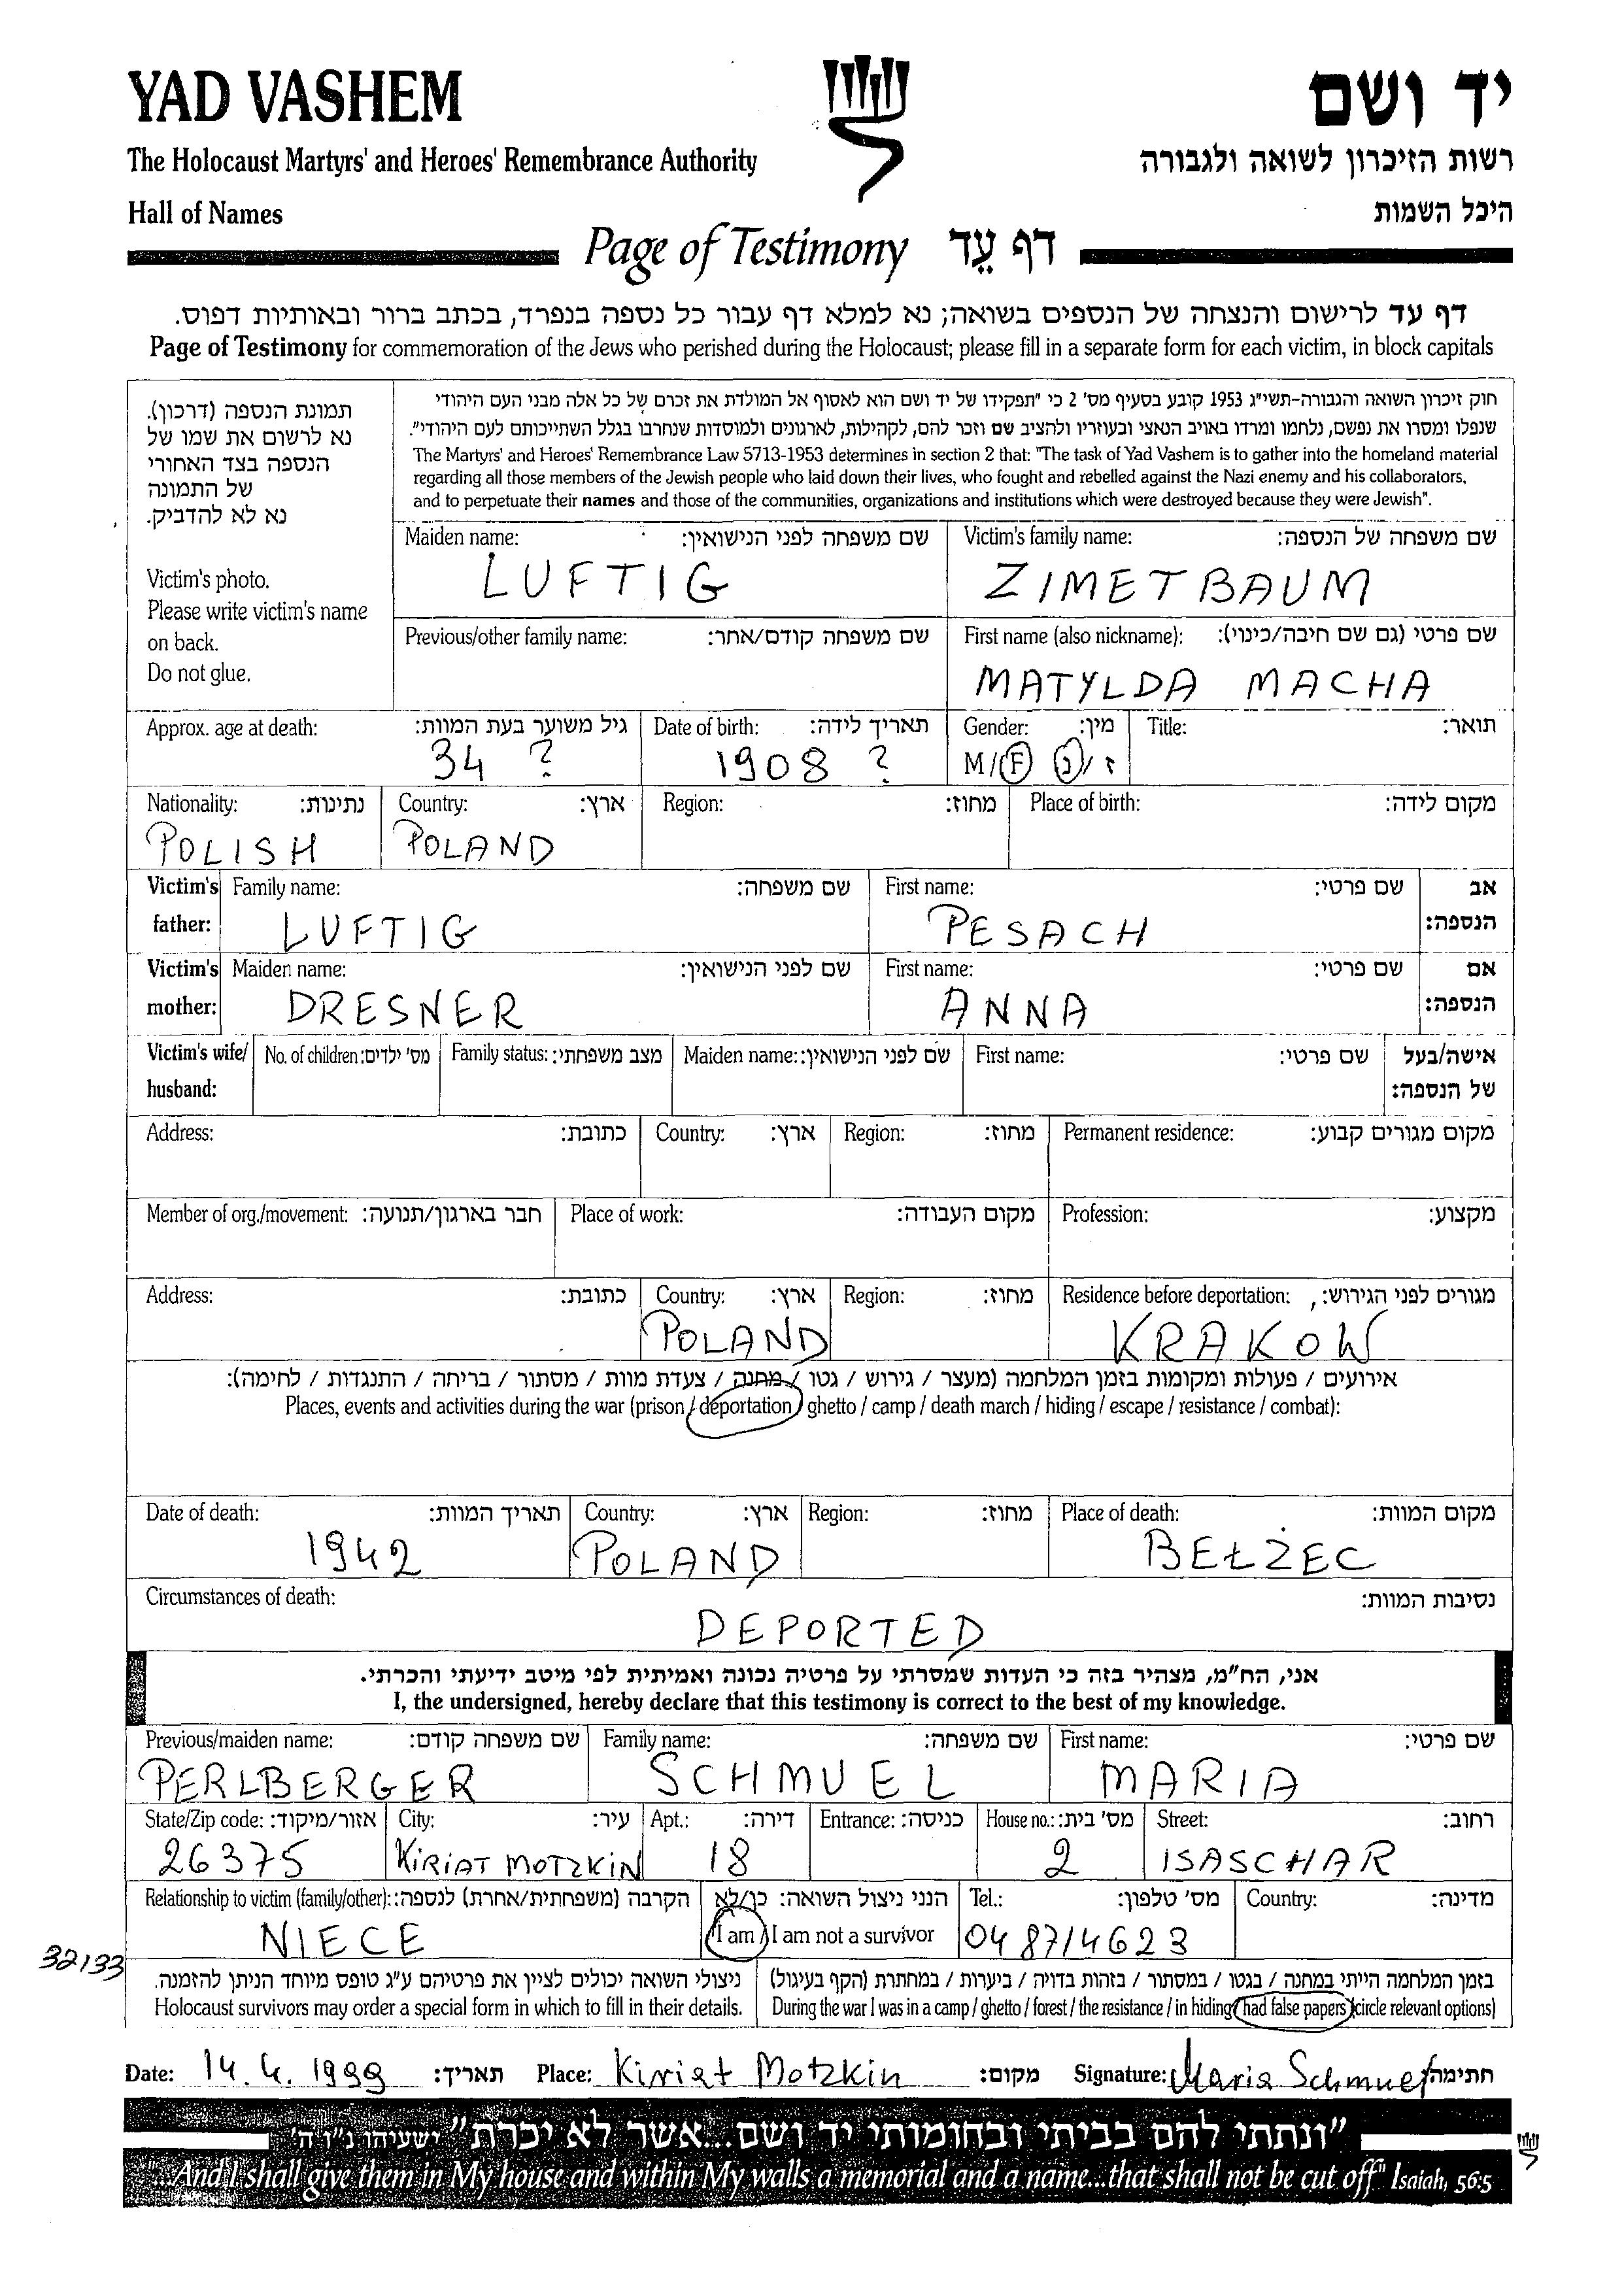 YAD VASHEM
יד ושם
The Holocaust Martyrs' and Heroes' Remembrance Authority
רשות הזיכרון לשואה ולגבורה
Hall of Names
היכל השמות
Page of Testimony דף עֵד
דף עד לרישום והנצחה של הנספים בשואה; נא למלא דף עבור כל נספה בנפרד, בכתב ברור ובאותיות דפוס.
Page of Testimony for commemoration of the Jews who perished during the Holocaust; please fill in a separate form for each victim, in block capitals
תמונת הנספה (דרכון).
נא לרשום את שמו של
הנספה בצד האחורי
של התמונה
נא לא להדביק.
Victim's photo.
Please write victim's name
on back.
Do not glue.
חוק זיכרון השואה והגבורה-תשי"ג 1953 קובע בסעיף מס' 2 כי "תפקידו של יד ושם הוא לאסוף אל המולדת את זכרם של כל אלה מבני העם היהודי
שנפלו ומסרו את נפשם, נלחמו ומרדו באויב הנאצי ובעוזריו ולהציב שם וזכר להם, לקהילות, לארגונים ולמוסדות שנחרבו בגלל השתייכותם לעם היהודי".
The Martyrs' and Heroes' Remembrance Law 5713-1953 determines in section 2 that: "The task of Yad Vashem is to gather into the homeland material
regarding all those members of the Jewish people who laid down their lives, who fought and rebelled against the Nazi enemy and his collaborators,
and to perpetuate their names and those of the communities, organizations and institutions which were destroyed because they were Jewish".
Maiden name: שם משפחה לפני הנישואין: Victim's family name: שם משפחה של הנספה:
LUFTIG ZIMETBAUM
Previous/other family name: שם משפחה קודם/אחר: First name (also nickname): שם פרטי (גם שם חיבה/כינוי):
MATYLDA MACHA
Approx. age at death: גיל משוער בעת המוות: Date of birth: תאריך לידה: Gender: מין: Title: תואר:
34 ? 1908 ? M/F ז/נ
Nationality: נתינות: Country: ארץ: Region: מחוז: Place of birth: מקום לידה:
POLISH POLAND
Victim's Family name: שם משפחה: First name: שם פרטי: אב
father: LUFTIG PESACH הנספה:
Victim's Maiden name: שם לפני הנישואין: First name: שם פרטי: אם
mother: DRESNER ANNA הנספה:
Victim's wife/ No. of children: מס' ילדים: Family status: מצב משפחתי: Maiden name: שם לפני הנישואין: First name: שם פרטי: אישה/בעל
husband: של הנספה:
Address: כתובת: Country: ארץ: Region: מחוז: Permanent residence: מקום מגורים קבוע:
Member of org./movement: חבר בארגון/תנועה: Place of work: מקום העבודה: Profession: מקצוע:
Address: כתובת: Country: ארץ: Region: מחוז: Residence before deportation: מגורים לפני הגירוש:
POLAND KRAKOW
אירועים / פעולות ומקומות בזמן המלחמה (מעצר / גירוש / גטו / מחנה / צעדת מוות / מסתור / בריחה / התנגדות / לחימה):
Places, events and activities during the war (prison / deportation / ghetto / camp / death march / hiding / escape / resistance / combat):
Date of death: תאריך המוות: Country: ארץ: Region: מחוז: Place of death: מקום המוות:
1942 POLAND BEŁŻEC
Circumstances of death: נסיבות המוות:
DEPORTED
אני, הח"מ, מצהיר בזה כי העדות שמסרתי על פרטיה נכונה ואמיתית לפי מיטב ידיעתי והכרתי.
I, the undersigned, hereby declare that this testimony is correct to the best of my knowledge.
Previous/maiden name: שם משפחה קודם: Family name: שם משפחה: First name: שם פרטי:
PERLBERGER SCHMUEL MARIA
State/Zip code: אזור/מיקוד: City: עיר: Apt.: דירה: Entrance: כניסה: House no.: מס' בית: Street: רחוב:
26375 KIRIAT MOTZKIN 18 2 ISASCHAR
Relationship to victim (family/other): הקרבה (משפחתית/אחרת) לנספה: הנני ניצול השואה: כן/לא Tel.: מס' טלפון: Country: מדינה:
NIECE I am / I am not a survivor 04 8714623
32/33
ניצולי השואה יכולים לציין את פרטיהם ע"ג טופס מיוחד הניתן להזמנה. בזמן המלחמה הייתי במחנה / בגטו / במסתור / בזהות בדויה / ביערות / במחתרת (הקף בעיגול)
Holocaust survivors may order a special form in which to fill in their details. During the war I was in a camp / ghetto / forest / the resistance / in hiding / had false papers (circle relevant options)
Date: 14.4.1999 תאריך: Place: Kiriat Motzkin מקום: Signature: Maria Schmuel חתימה:
"ונתתי להם בביתי ובחומותי יד ושם...אשר לא יכרת" ישעיהו נ"ו ה'
"...And I shall give them in My house and within My walls a memorial and a name...that shall not be cut off" Isaiah, 56:5